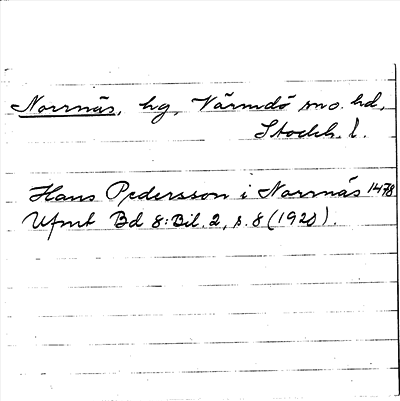 Norrnäs, hg, Värmdö sno. hd,
Stockh. l.
Hans Pedersson i Norrnäs 1478
Ufmt Bd 8: Bil. 2, s. 8 (1920).